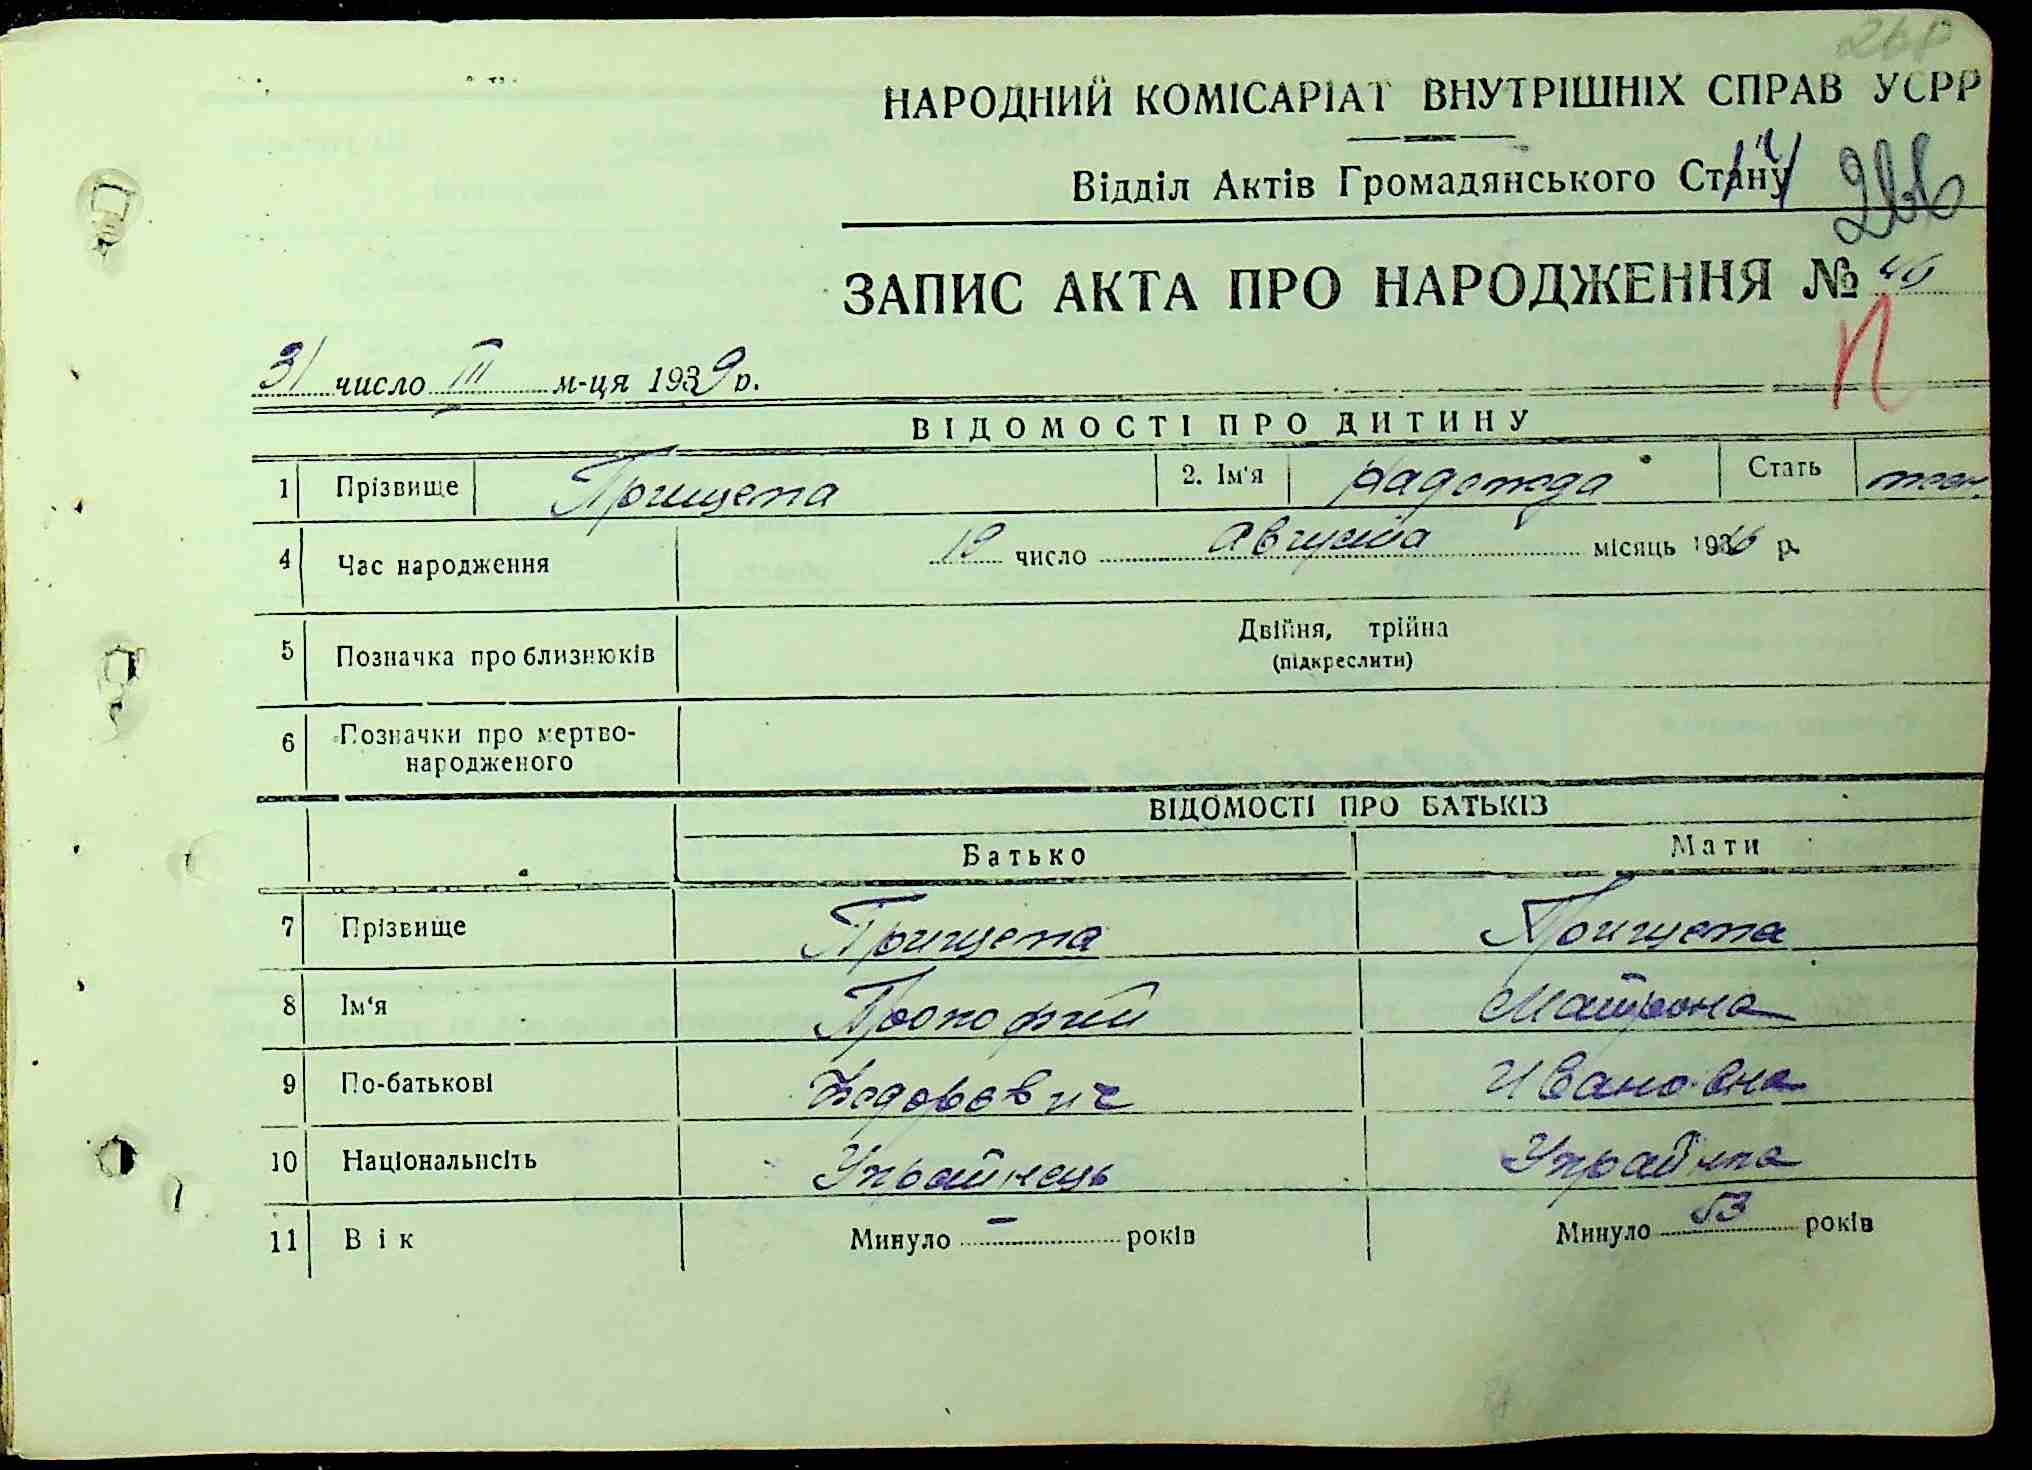 НАРОДНИЙ КОМІСАРІАТ ВНУТРІШНІХ СПРАВ УСРР
Відділ Актів Громадянського Стану
ЗАПИС АКТА ПРО НАРОДЖЕННЯ №
31 число III м-ця 1939 р.
ВІДОМОСТІ ПРО ДИТИНУ
1 Прізвище Прищепа 2. Ім'я Надежда Стать жен.
4 Час народження 19 число Августа місяць 19 р.
5 Позначка про близнюків Двійня, трійна
(підкреслити)
6 Позначки про мертво-
народженого
ВІДОМОСТІ ПРО БАТЬКІВ
Батько Мати
7 Прізвище Прищепа Прищепа
8 Ім'я Прокофий Матрона
9 По-батькові Федорович Ивановна
10 Національнсіть Украінець Украінка
11 Вік Минуло – років Минуло 53 років